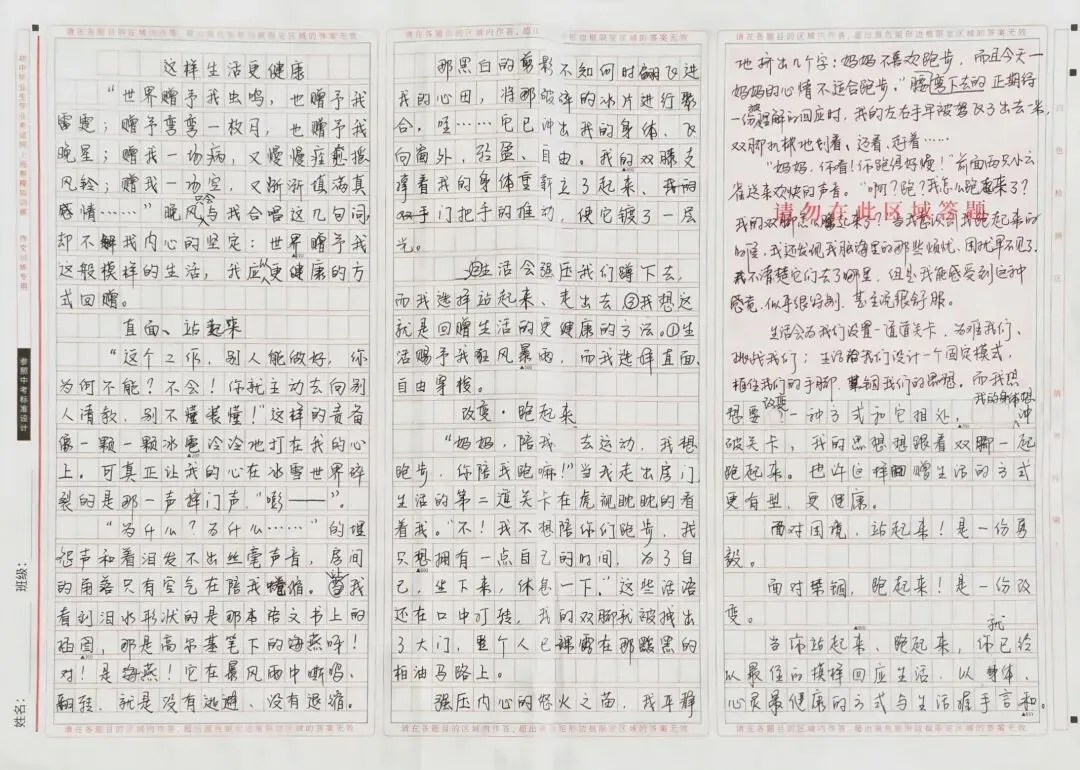 请在各题目的区域内作答，超出黑色矩形边框限定区域的答案无效
这样生活更健康
“世界赠予我虫鸣，也赠予我
雷霆；赠予弯弯一枚月，也赠予我
晚星；赠我一场病，又慢慢痊愈摇
风铃；赠我一场空，又渐渐填满真
感情……”晚风只会与我合唱这几句词，
却不解我内心的坚定：世界赠予我
这般模样的生活，我应以更健康的方
式回赠。
直面、站起来
“这个工作，别人能做好，你
为何不能？不会！你就主动去向别
人请教，别不懂装懂！”这样的责备
像一颗一颗冰雹冷冷地打在我的心
上。可真正让我的心在冰雪世界碎
裂的是那一声摔门声，“嘭——”。
“为什么？为什么……”的埋
怨声和着泪发不出丝毫声音，房间
的角落只有空气在陪我蜷缩。当我
看到泪水形状的是那本语文书上的
插图，那是高尔基笔下的海燕呀！
对！是海燕！它在暴风雨中嘶鸣、
翻转，就是没有逃避、没有退缩。
请在各题目的区域内作答，超出黑色矩形边框限定区域的答案无效
请在各题目的区域内作答，超出 边框限定区域的答案无效
那黑白的剪影不知何时翻飞进
我的心田，将那破碎的冰片进行聚
合。呀……它已冲出我的身体，飞
向窗外，轻盈、自由。我的双腿支
撑着我的身体重新立了起来，我的
双手门把手的推动，使它镀了一层
光。
生活会强压我们蹲下去，
而我选择站起来、走出去②我想这
就是回赠生活的更健康的方法。①生
活赐予我狂风暴雨，而我选择直面、
自由穿梭。
改变·跑起来
“妈妈，陪我 去运动，我想
跑步，你陪我跑嘛！”当我走出房门
生活的第二道关卡在虎视眈眈的看
着我。“不！我不想陪你们跑步，我
只想拥有一点自己的时间，为了自
己，坐下来，休息一下。”这些话语
还在口中打转，我的双脚就被拽出
了大门，整个人已裸露在那黢黑的
柏油马路上。
强压内心的怒火之苗，我平静
请在各题目的区域内作答，超出黑色矩形边框限定区域的答案无效
请在各题目的区域内作答，超出黑色矩形边框限定区域的答案无效
地挤出几个字：妈妈不喜欢跑步，而且今天
妈妈的心情不适合跑步。”腰弯下去的正期待
一份理解的回应时，我的左右手早被驾飞了出去一米，
双脚机械地划着、迈着、赶着……
“妈妈，你看！你跑得好嗖！”前面两只小云
雀送来欢快的声音。“啊？跑？我怎么跑起来了？
我的双脚怎么跑起来了？”当我意识到我跑起来的
时候，我还发现我脑海里的那些烦忧、困扰不见了。
我不清楚它们去了哪里，但是我能感受到这种
感觉，似乎很特别，甚至说很舒服。
请勿在此区域答题
生活会为我们设置一道道关卡，为难我们、
挑战我们；生活为我们设计一个固定模式，
植住我们的手脚，禁锢我们的思想。而我想
想要改变一种方式和它相处。我的身体想冲
破关卡，我的思想想跟着双脚一起
跑起来。也许这样回赠生活的方式
更有型，更健康。
面对困境，站起来！是一份勇
毅。
面对禁锢，跑起来！是一份改
变。
当你站起来、跑起来，你就已经
以最佳的模样回应生活，以身体、
心灵最健康的方式与生活握手言和。
请在各题目的区域内作答，超出黑色矩形边框限定区域的答案无效
参照中考标准设计
作文训练专用
班级：
姓名：